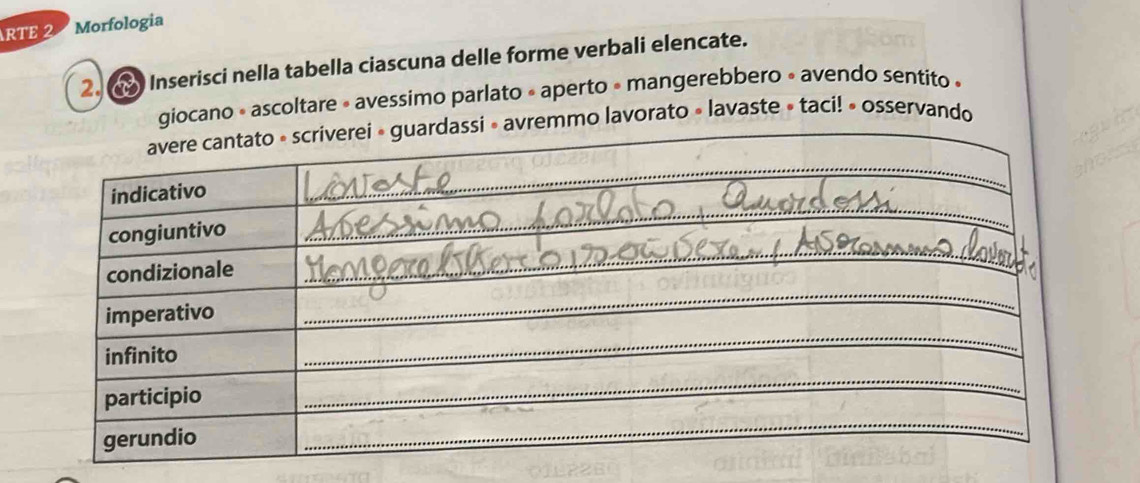 ARTE 2 Morfologia
2. Inserisci nella tabella ciascuna delle forme verbali elencate.
giocano • ascoltare • avessimo parlato • aperto • mangerebbero • avendo sentito •
avere cantato • scriverei • guardassi • avremmo lavorato • lavaste • taci! • osservando
indicativo Lavaste
congiuntivo Avessimo parlato, Guardassi
condizionale
imperativo
infinito
participio
gerundio